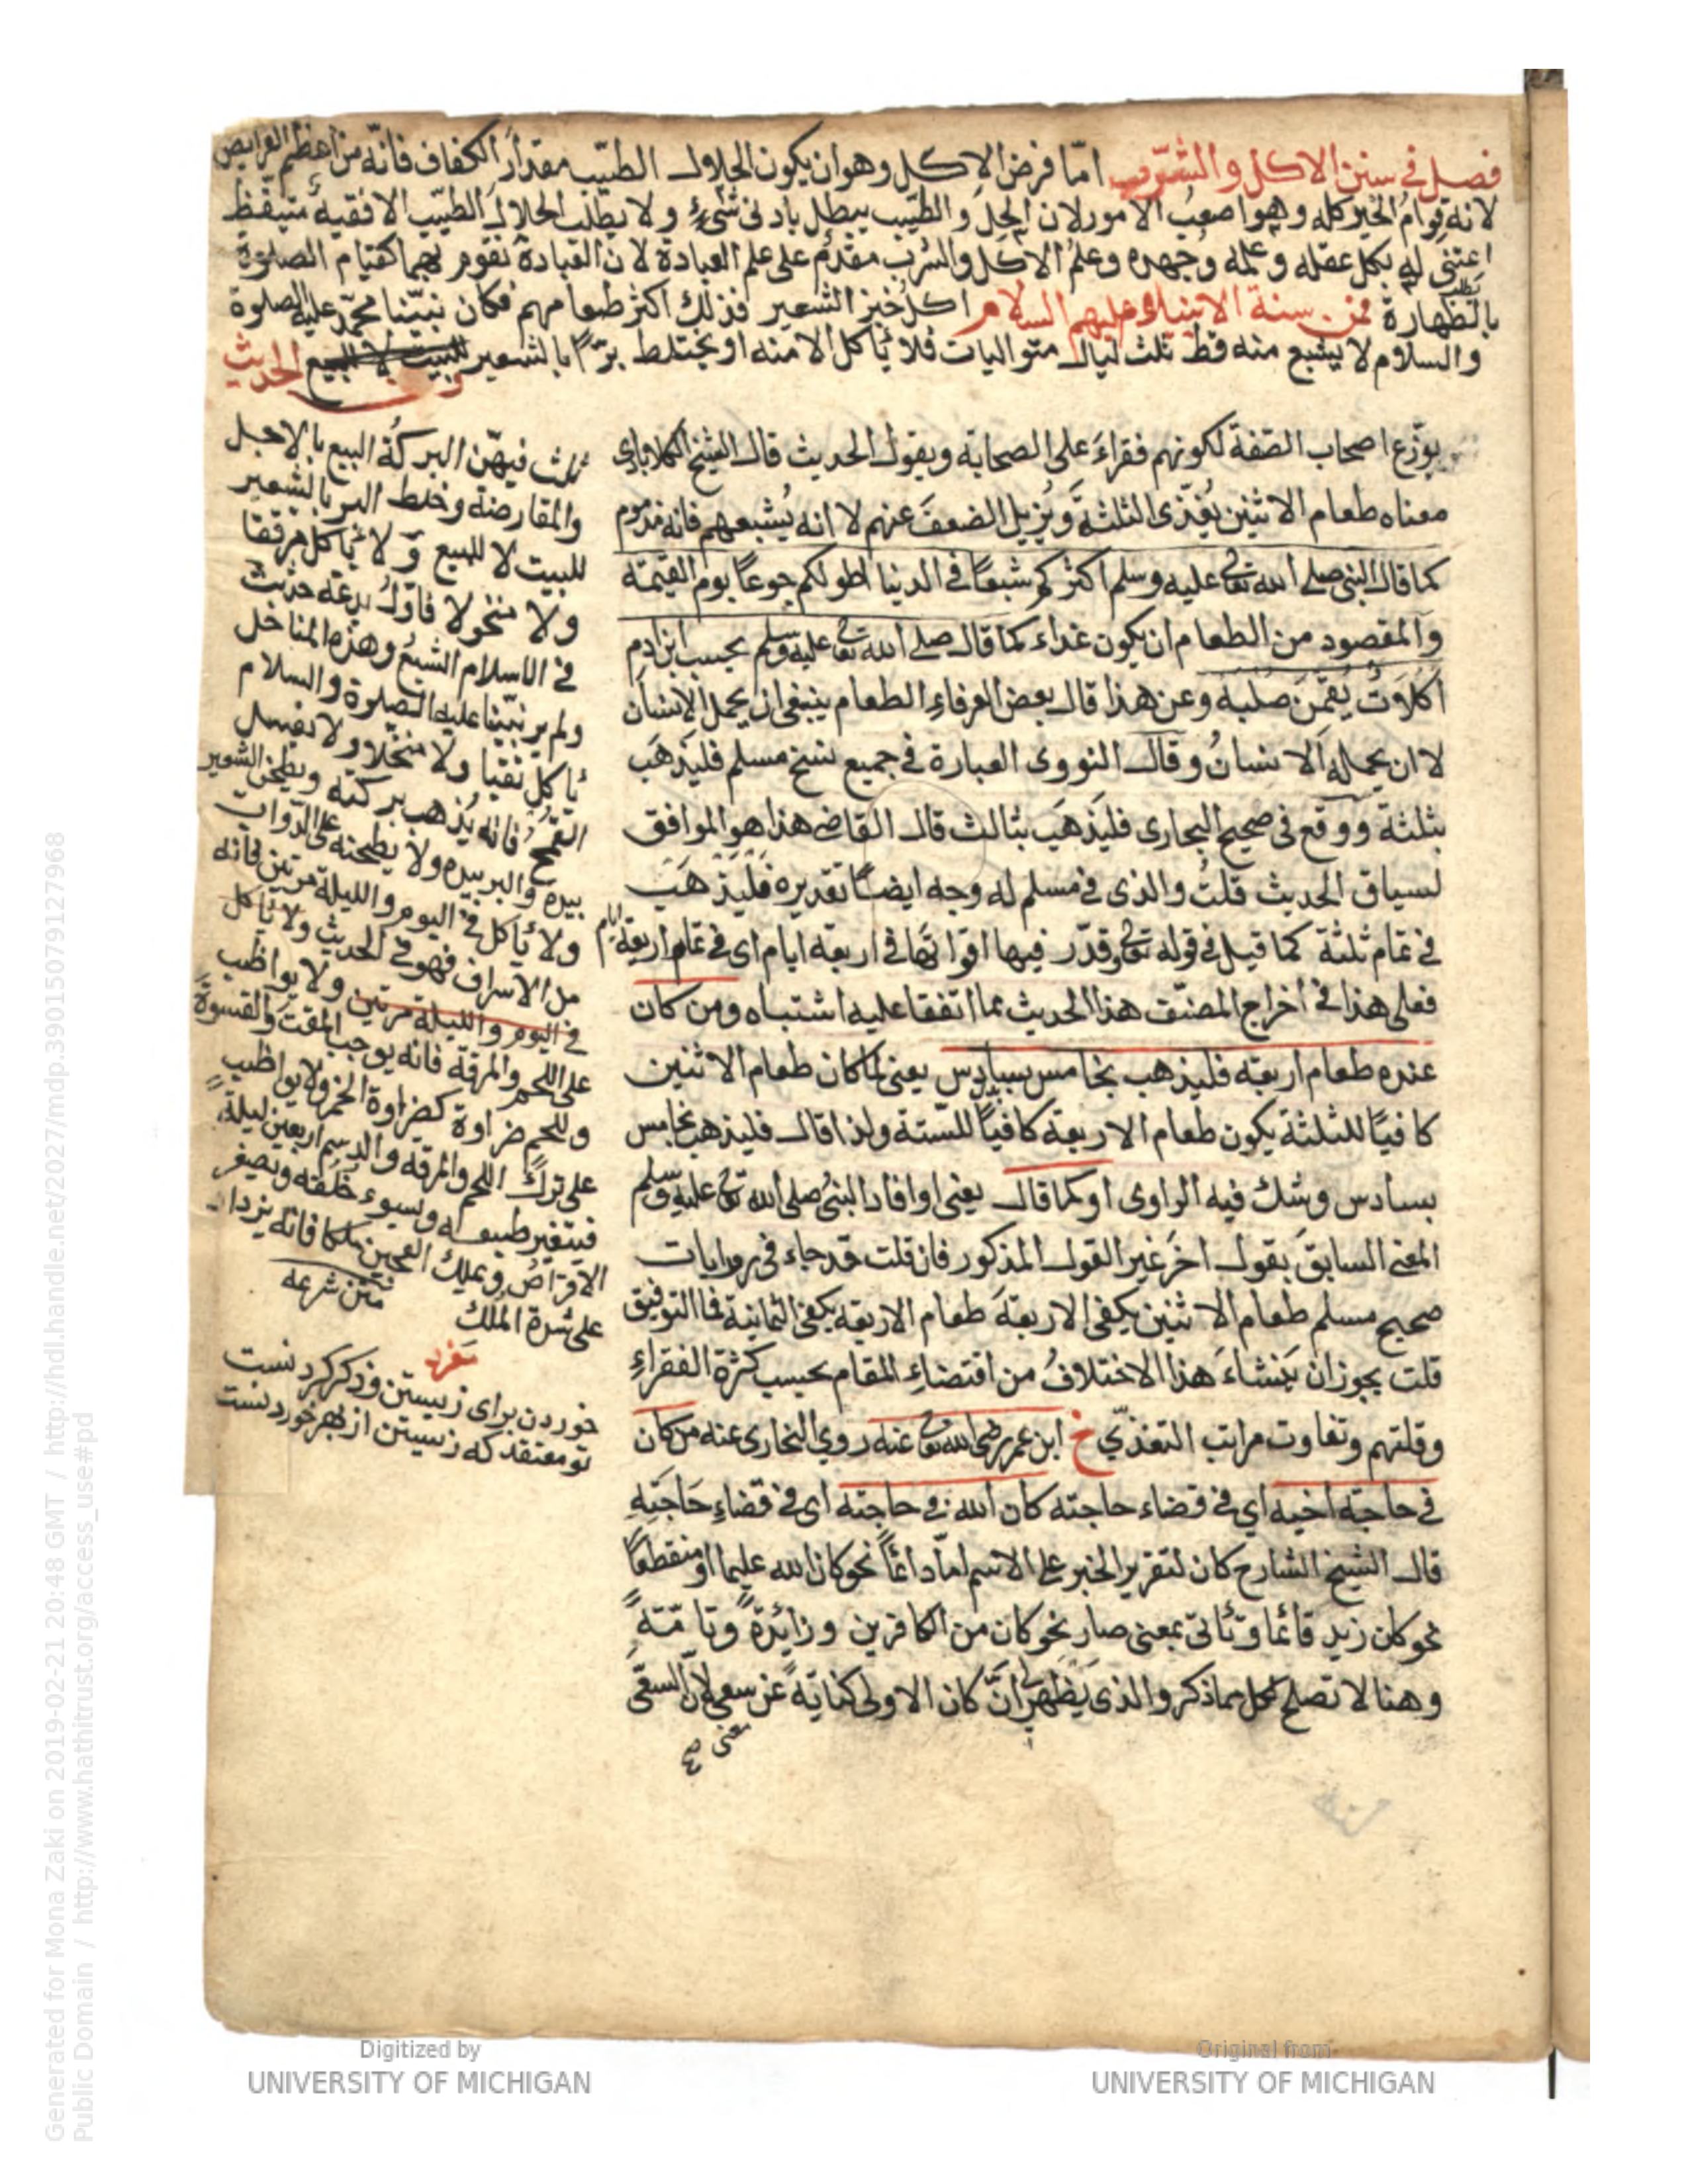 فصل في سنن الاكل والشرب امّا فرض الاكل وهو ان يكون الحلال الطيّب مقدار الكفاف فانّه من اعظم الفرايض
لانه قوام الخير كله وهو اصعب الامور لان الحل والطيب يبطل بادنى شيء ولا يطلب الحلال الطيّب الا فقيه متيقظ
اعتنى له بكل عقله وعلمه وجهده وعلم الاكل والشرب مقدم على علم العبادة لان العبادة تقوم بهما كقيام الصلوة
بالطهارة فمن سنة الانبياء عليهم السلام اكل خبز الشعير فذلك اكثر طعامهم فكان نبيّنا محمّد عليه الصلوة
والسلام لا يشبع منه قط ثلث ليال متواليات فلا يأكل الا منه او يختلط برّا بالشعير للبيت لا للبيع وفي الحديث
يوزّع اصحاب الصّفة لكونهم فقراء على الصحابة ويقول الحديث قال الشيخ الكلاباذي
معناه طعام الاثنين يُغذّى الثلثة ويُزيل الضعف عنهم لا انه يُشبعهم فانه مذموم
كما قال النبي صلى الله تعا عليه وسلم اكثركم شبعًا في الدنيا اطولكم جوعًا يوم القيمة
والمقصود من الطعام ان يكون غذاء كما قال صلى الله تعا عليه وسلم بحسب ابن ادم
اكلات يُقمن صلبه وعن هذا قال بعض العرفاء الطعام ينبغى ان يحمل الانسان
لا ان يحمله الانسان وقال النووى العبارة في جميع نسخ مسلم فليذهب
بثلثة ووقع في صحيح البخارى فليذهب بثالث قال القاضى هذا هو الموافق
لسياق الحديث قلت والذى في مسلم له وجه ايضًا تقديره فليذهب
في تمام ثلثة كما قيل في قوله تعا وقدّر فيها اقواتها في اربعة ايام اى في تمام اربعة ايام
فعلى هذا في اخراج المصنّف هذا الحديث مما اتفقا عليه اشتباه ومن كان
عنده طعام اربعة فليذهب بخامس بسادس يعنى لما كان طعام الاثنين
كافيًا للثلثة يكون طعام الاربعة كافيًا للستة ولذا قال فليذهب بخامس
بسادس وشك فيه الراوى او كما قال يعنى او افاد النبي صلى الله تعا عليه وسلم
المعنى السابق بقول اخر غير القول المذكور فان قلت قد جاء في روايات
صحيح مسلم طعام الاثنين يكفى الاربعة طعام الاربعة يكفى الثمانية فما التوفيق
قلت يجوز ان يَنشاء هذا الاختلاف من اقتضاء المقام بحسب كثرة الفقراء
وقلتهم وتفاوت مراتب التغذّي خ ابن عمر رضى الله تعا عنه روي البخارى عنه من كان
في حاجة اخيه اي في قضاء حاجته كان الله في حاجته اى في قضاء حاجته
قال الشيخ الشارح كان لتقرير الخبر على الاسم اما دائمًا نحو كان الله عليما او منقطعًا
نحو كان زيد قائما وتأتى بمعنى صار نحو كان من الكافرين وزائدة وتامّة
وهنا لا تصلح لكل مما ذكر والذى يظهر لى انّ كان الاولى كناية عن سعي لانّ السعى
ثلث فيهنّ البركة البيع بالاجل
والمقارضة وخلط البر بالشعير
للبيت لا للبيع ولا يأكل مرققا
ولا منخولا فاوّل بدعة حدثت
في الاسلام الشبع وهذه المناخل
ولم ير نبيّنا عليه الصلوة والسلام
يأكل نقيا ولا منخلا ولا يغسل
القمح فانه يُذهب بركته ويطحن الشعير
بيده والبر بيده ولا يطحنه على الدّواب
ولا يأكل في اليوم والليلة مرتين فانه
من الاسراف فهو في الحديث ولا يأكل
في اليوم والليلة مرتين ولا يواظب
على اللحم والمرقة فانه يوجب المقت والقسوة
وللحم ضراوة كضراوة الخمر ولا يواظب
على ترك اللحم والمرقة والدسم اربعين ليلة
فيتغير طبعه ويسوء خلقه ويصغر
الاقراص ويملك العجين ملكا فانه يزداد
على شدة الملك
متن شرعه
خوردن براى زيستن و ذكر كردنست
تو معتقد كه زيستن از بهر خوردنست
Generated for Mona Zaki on 2019-02-21 20:48 GMT / http://hdl.handle.net/2027/mdp.39015079127968
Public Domain / http://www.hathitrust.org/access_use#pd
Digitized by
UNIVERSITY OF MICHIGAN
Original from
UNIVERSITY OF MICHIGAN